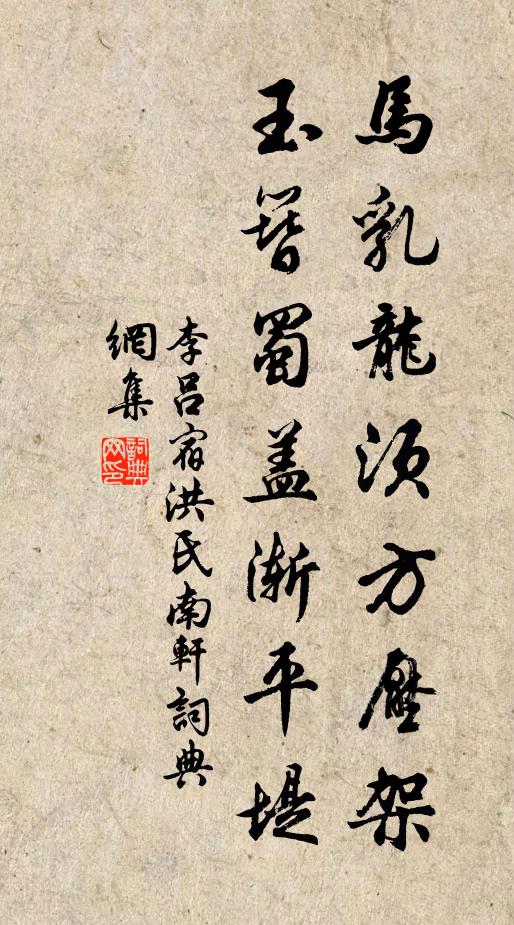 馬乳龍須方壓架
玉簪蜀盖漸平堤
李吕宿洪氏南軒詞典
網集
詞典
网印